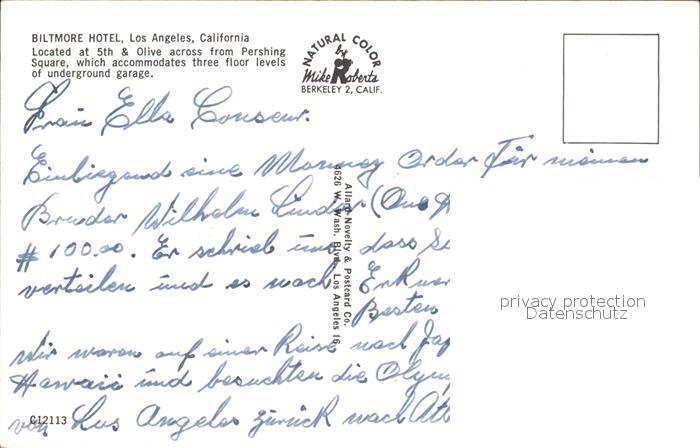 BILTMORE HOTEL, Los Angeles, California
Located at 5th & Olive across from Pershing
Square, which accommodates three floor levels
of underground garage.
NATURAL COLOR
by
Mike Roberts
BERKELEY 2, CALIF.
Frau Ella Conseur.
Einbiegend eine Monney Order Für meinen
Bruder Wilhelm Linder (One
# 100.00. Er schrieb uns dass Se
verteilen und es nach
Besten
Wir waren auf einer Reise nach Jap
Hawaii und besuchten die Olymp
von Los Angeles zurück nach Atl
Allard Novelty & Postcard Co.
4626 W. Wash. Blvd. Los Angeles 16
C12113
privacy protection
Datenschutz